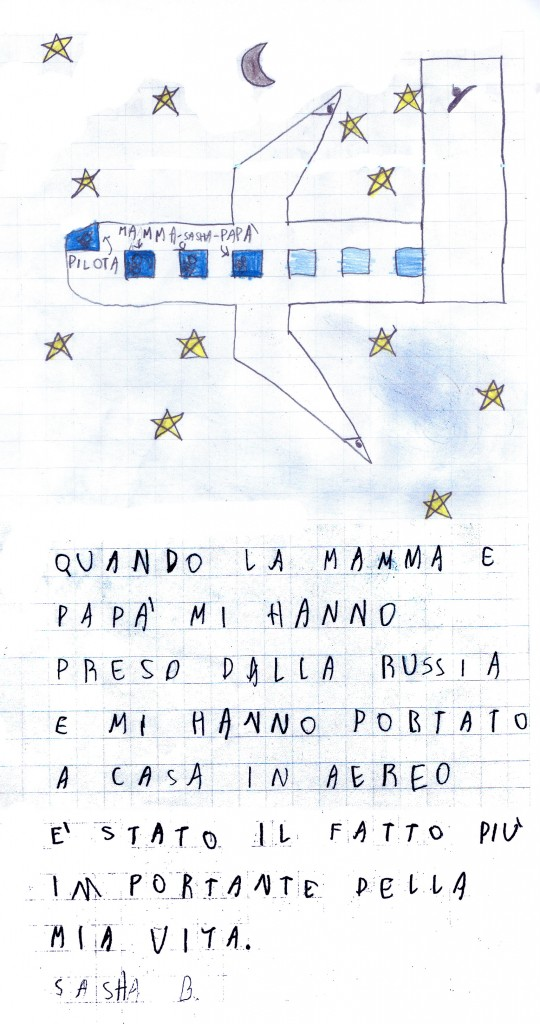 MAMMA-SASHA-PAPA'
PILOTA
QUANDO LA MAMMA E
PAPA' MI HANNO
PRESO DALLA RUSSIA
E MI HANNO PORTATO
A CASA IN AEREO
E' STATO IL FATTO PIU'
IMPORTANTE DELLA
MIA VITA.
SASHA B.